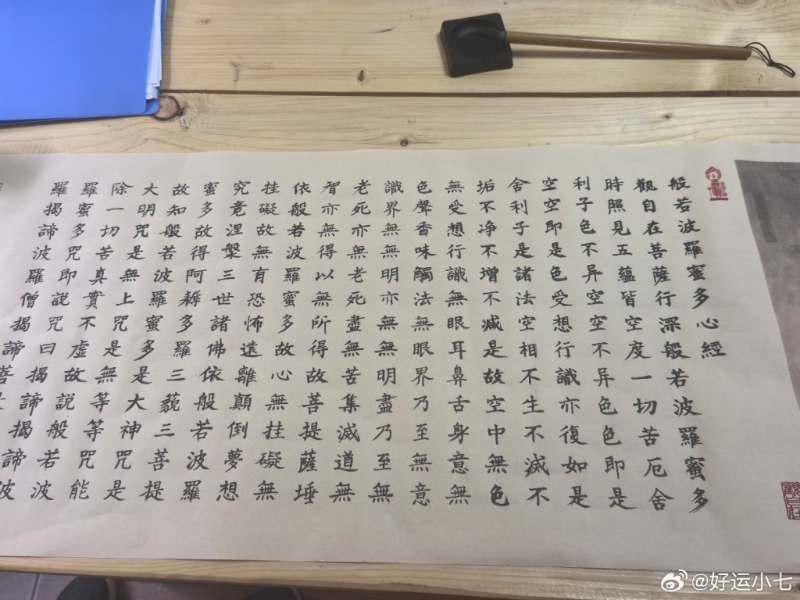 般若波羅蜜多心經
觀自在菩薩行深般若波羅蜜多
時照見五蘊皆空度一切苦厄舍
利子色不异空空不异色色即是
空空即是色受想行識亦復如是
舍利子是諸法空相不生不滅不
垢不净不增不減是故空中無色
無受想行識無眼耳鼻舌身意無
色聲香味觸法無眼界乃至無意
識界無無明亦無無明盡乃至無
老死亦無老死盡無苦集滅道無
智亦無得以無所得故菩提薩埵
依般若波羅蜜多故心無挂礙無
挂礙故無有恐怖遠離顛倒夢想
究竟涅槃三世諸佛依般若波羅
蜜多故得阿耨多羅三藐三菩提
故知般若波羅蜜多是大神咒是
大明咒是無上咒是無等等咒能
除一切苦真實不虛故說般若波
羅蜜多咒即說咒曰揭諦揭諦波
羅揭諦波羅僧揭諦菩
@好运小七